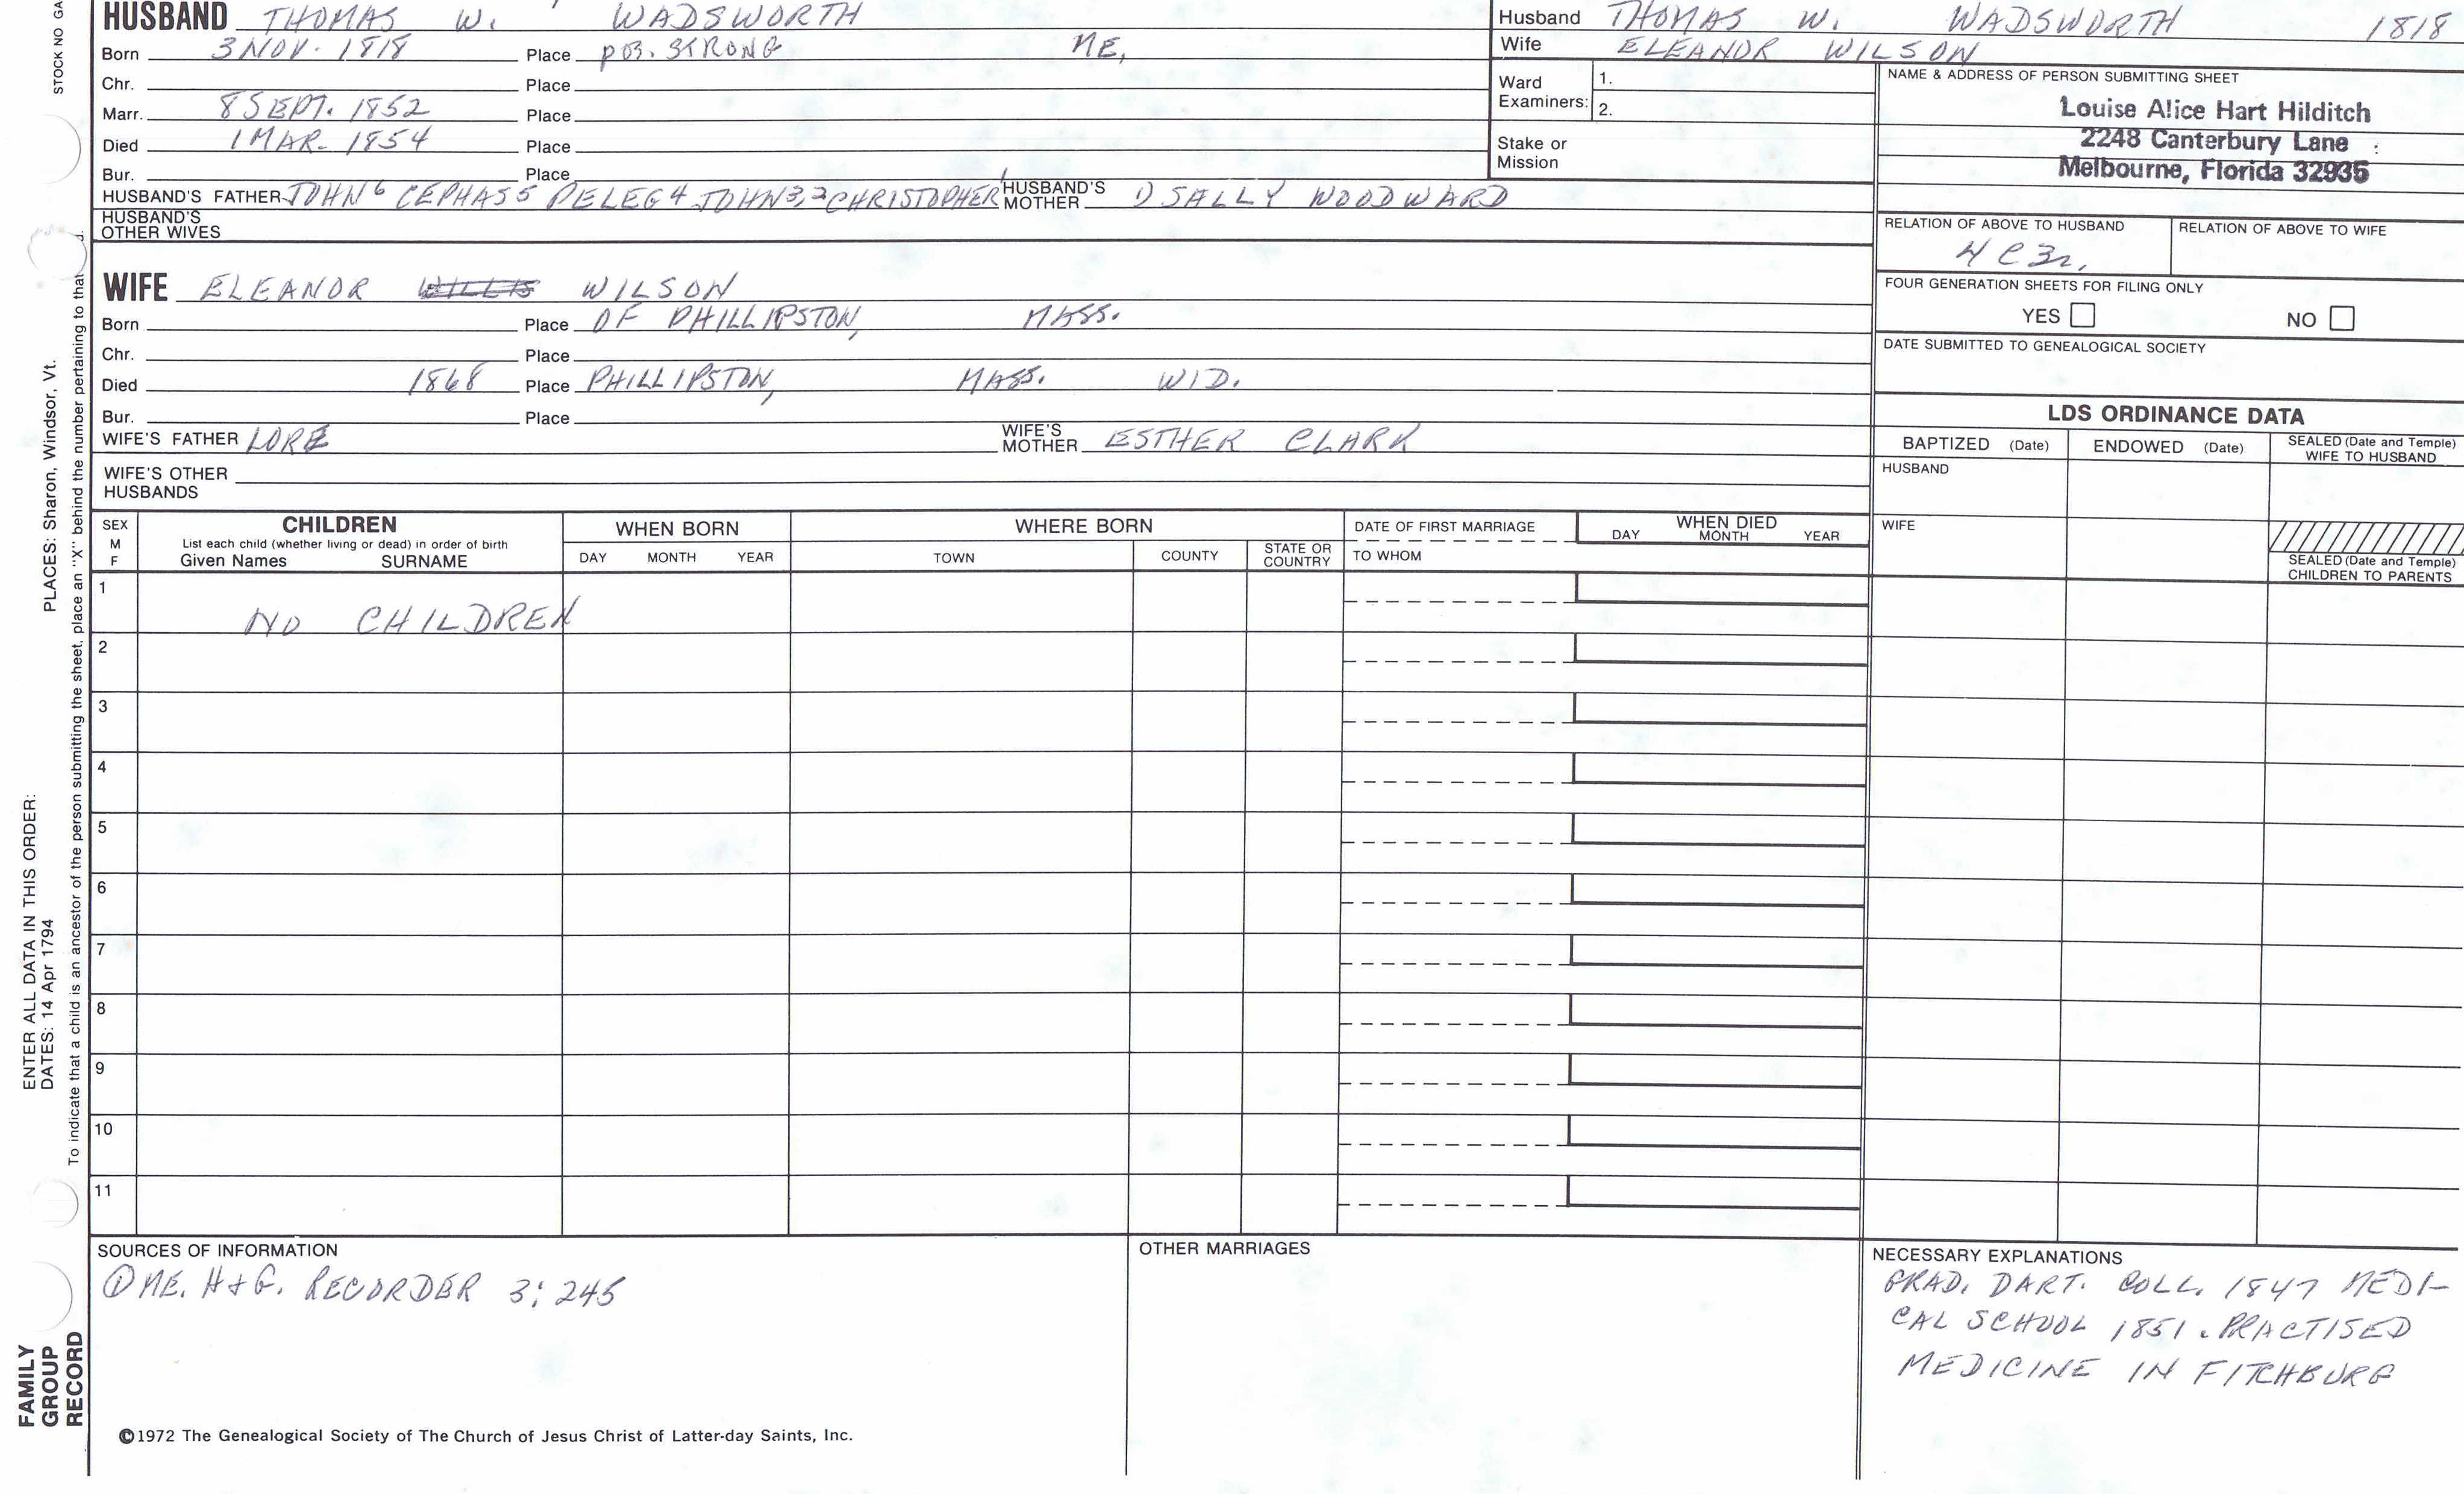 HUSBAND THOMAS W. WADSWORTH
Born 3 NOV. 1818 Place pos. STRONG ME,
Chr. Place
Marr. 8 SEPT. 1852 Place
Died 1 MAR. 1854 Place
Bur. Place
HUSBAND'S FATHER JOHN6 CEPHAS5 PELEG4 JOHN3,2 CHRISTOPHER1 HUSBAND'S MOTHER 1) SALLY WOODWARD
HUSBAND'S OTHER WIVES
WIFE ELEANOR WILSON
Born Place OF PHILLIPSTON, MASS.
Chr. Place
Died 1868 Place PHILLIPSTON, MASS. WID.
Bur. Place
WIFE'S FATHER LORE WIFE'S MOTHER ESTHER CLARK
WIFE'S OTHER HUSBANDS
Husband THOMAS W. WADSWORTH 1818
Wife ELEANOR WILSON
Ward Examiners: 1.
2.
Stake or Mission
NAME & ADDRESS OF PERSON SUBMITTING SHEET
Louise Alice Hart Hilditch
2248 Canterbury Lane
Melbourne, Florida 32935
RELATION OF ABOVE TO HUSBAND RELATION OF ABOVE TO WIFE
4 C 3r.
FOUR GENERATION SHEETS FOR FILING ONLY
YES NO
DATE SUBMITTED TO GENEALOGICAL SOCIETY
LDS ORDINANCE DATA
BAPTIZED (Date) ENDOWED (Date) SEALED (Date and Temple) WIFE TO HUSBAND
HUSBAND
WIFE
SEALED (Date and Temple) CHILDREN TO PARENTS
SEX M F CHILDREN WHEN BORN WHERE BORN DATE OF FIRST MARRIAGE WHEN DIED
List each child (whether living or dead) in order of birth
Given Names SURNAME DAY MONTH YEAR TOWN COUNTY STATE OR COUNTRY TO WHOM DAY MONTH YEAR
1 NO CHILDREN
2
3
4
5
6
7
8
9
10
11
SOURCES OF INFORMATION
① ME. H+G. RECORDER 3: 245
OTHER MARRIAGES
NECESSARY EXPLANATIONS
GRAD. DART. COLL. 1847 MEDI-
CAL SCHOOL 1851. PRACTISED
MEDICINE IN FITCHBURG
©1972 The Genealogical Society of The Church of Jesus Christ of Latter-day Saints, Inc.
STOCK NO GA
PLACES: Sharon, Windsor, Vt.
ENTER ALL DATA IN THIS ORDER:
DATES: 14 Apr 1794
To indicate that a child is an ancestor of the person submitting the sheet, place an "X" behind the number pertaining to that d.
FAMILY
GROUP
RECORD